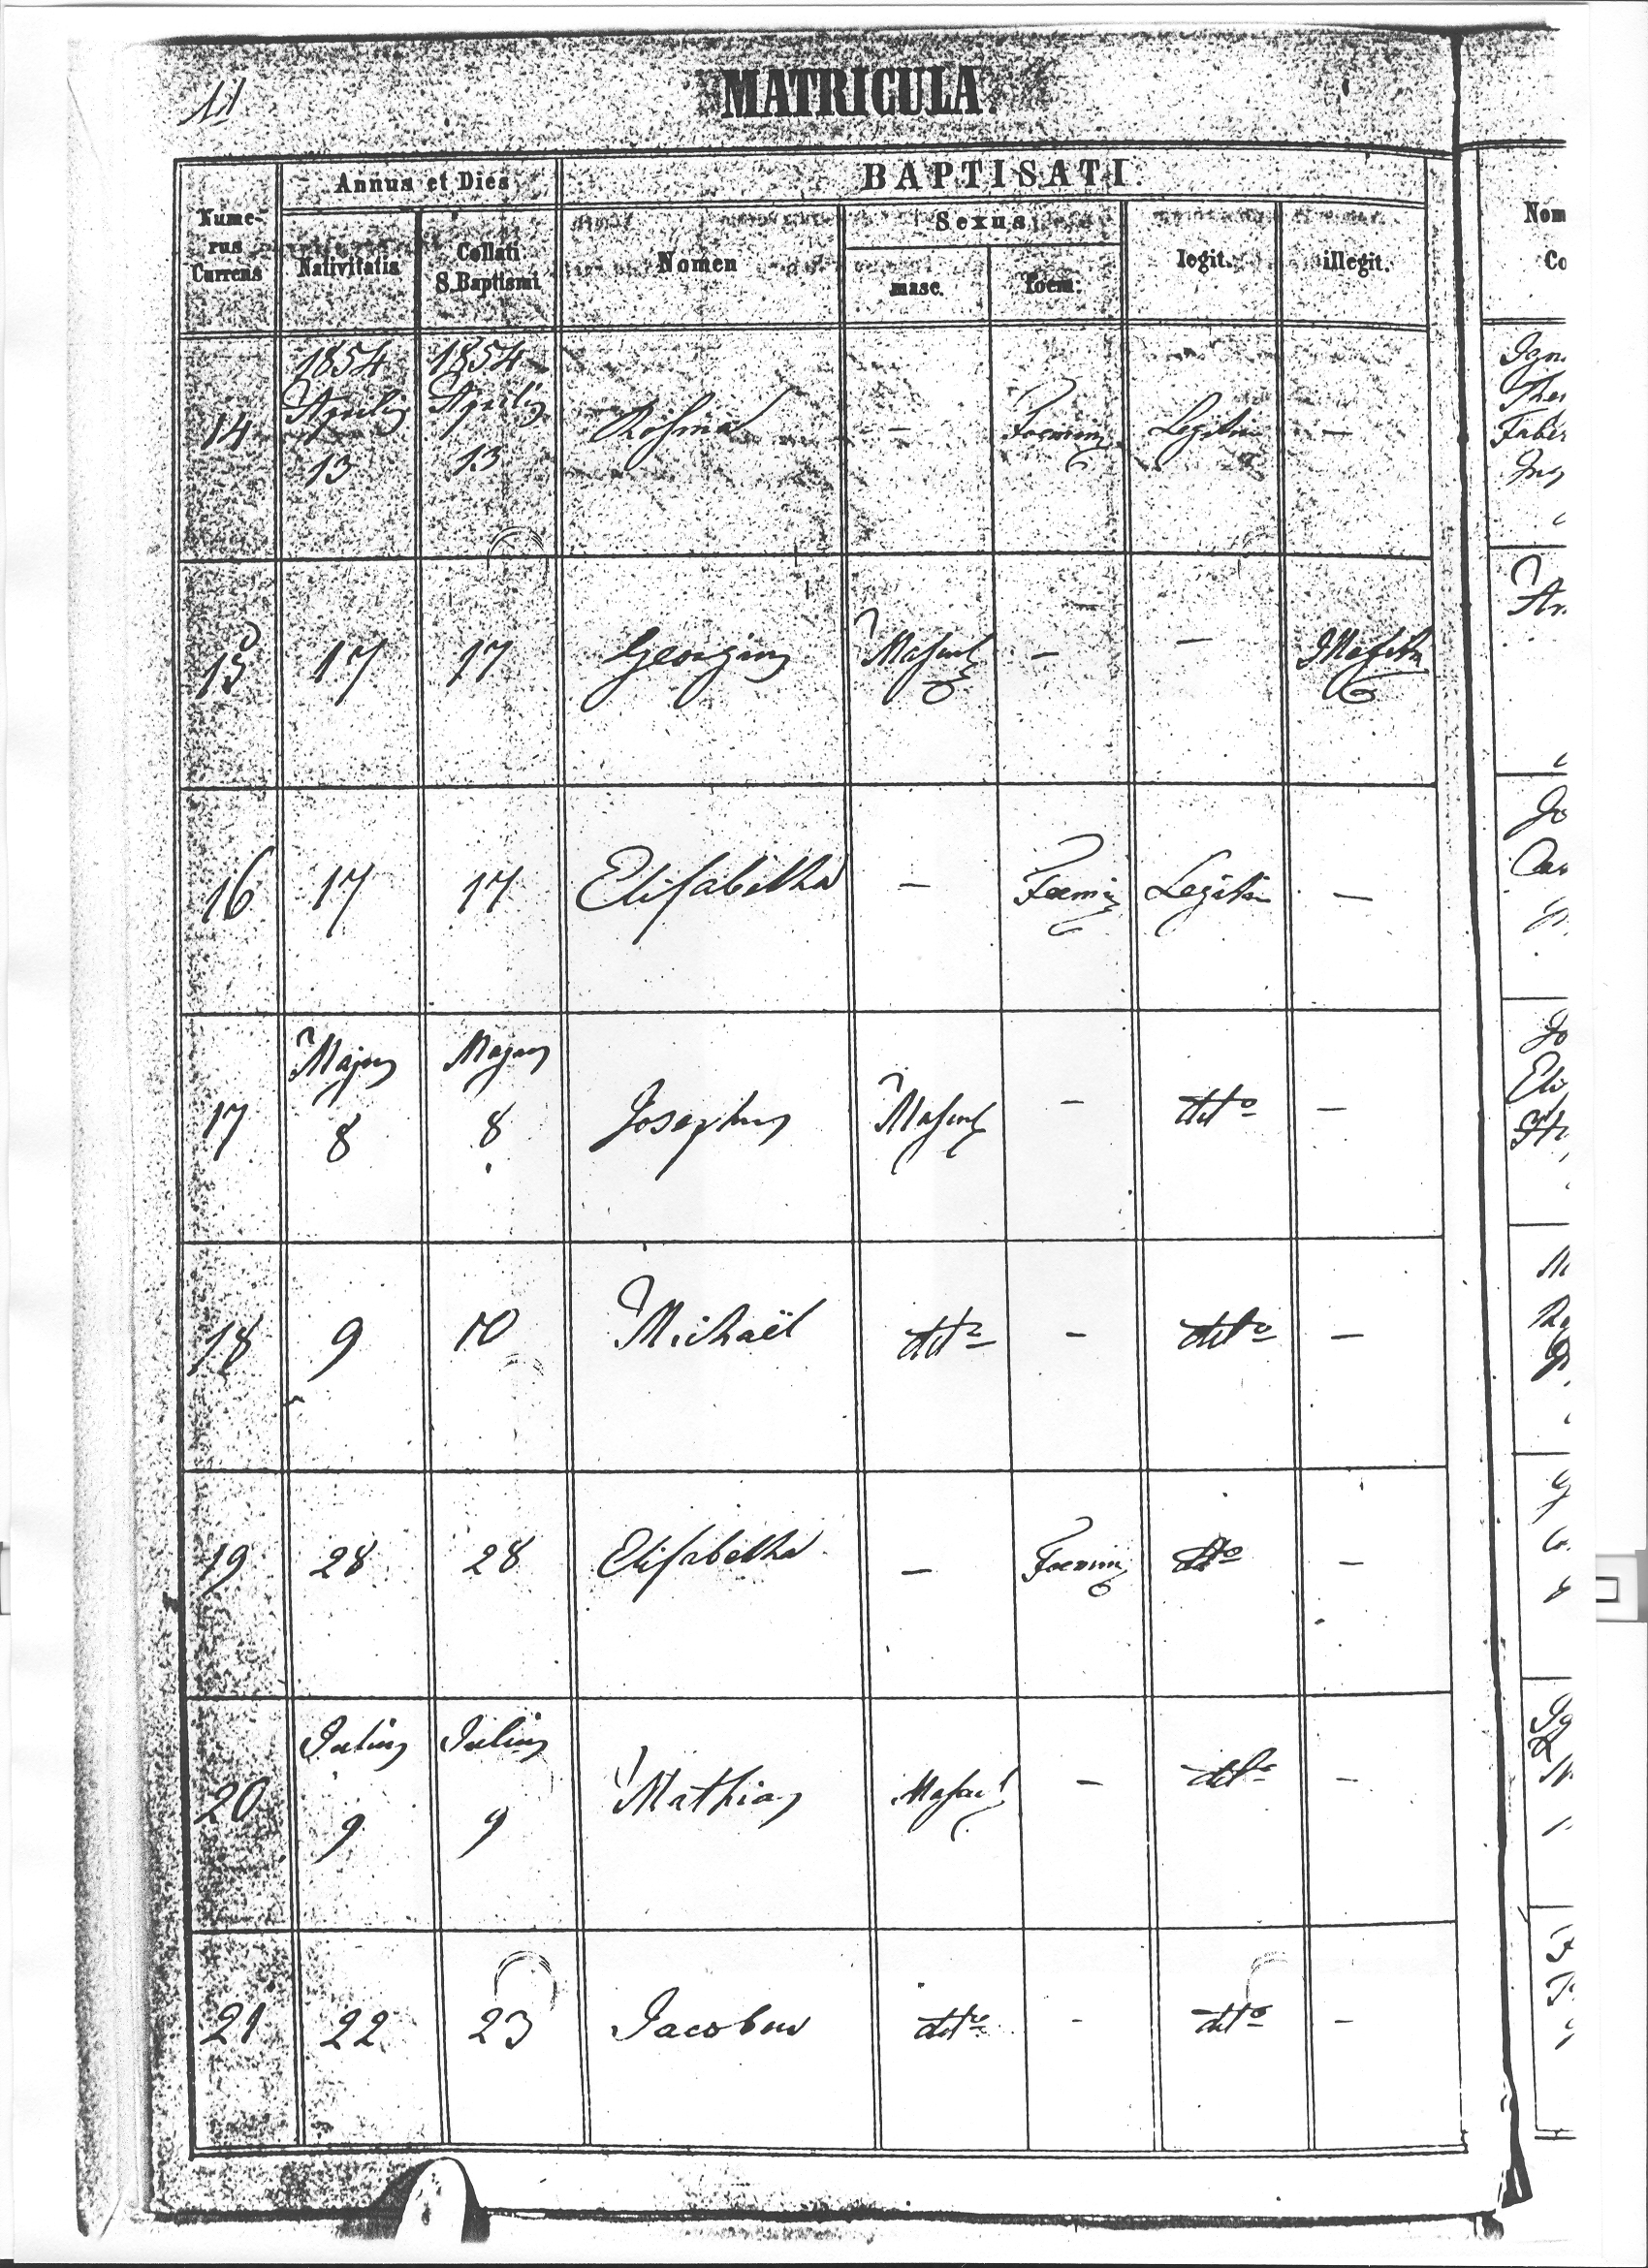 11
MATRICULA.
Numerus Currens
Annus et Dies
BAPTISATI.
Nativitatis
Collati S. Baptismi
Nomen
Sexus
masc.
foem.
legit.
illegit.
Nom
Co
14 1854 Aprilis 13 1854 Aprilis 13 Rosina — Foemin Legitim —
Ign
The
Faber
15 17 17 Georgius Mascul — — Illegitim
16 17 17 Elisabetha — Foemin Legitim —
Jo
17 Majus 8 Majus 8 Josephus Mascul — detto —
Jo
Eli
18 9 10 Michaël detto — detto —
19 28 28 Elisabetha — Foemin detto —
20 Julius 9 Julius 9 Mathias Mascul — detto —
21 22 23 Jacobus detto — detto —